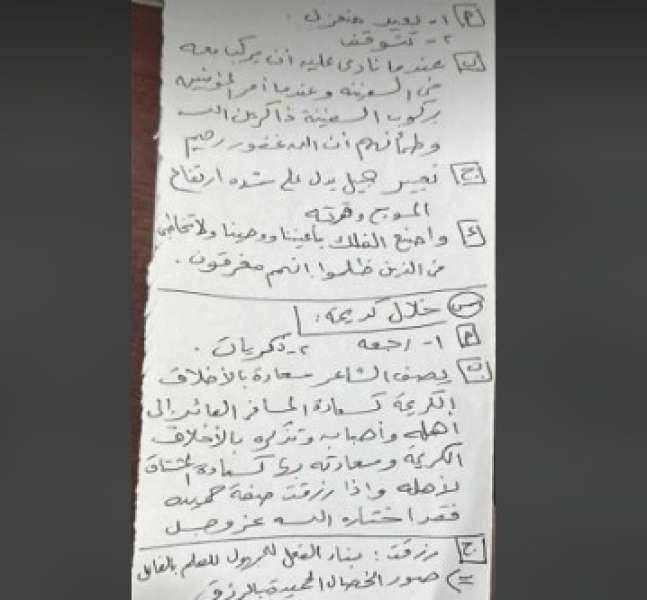 [م] ١- بعيد منعزل .
٢- تتوقف
[ب] عندما نادى عليه أن يركب معه
في السفينة وعندما أمر المؤمنين
بركوب السفينة ذاكرين الله
وطمأنهم أن الله غفور رحيم
[ج] تعبير جميل يدل على شدة ارتفاع
الموج وقوته
[د] واصنع الفلك بأعيننا ووحينا ولا تخاطبني
في الذين ظلموا إنهم مغرقون .
س خلال كريمة :
[م] ١- رجعه ٢- ذكريات .
[ب] يصف الشاعر سعادة بالأخلاق
الكريمة كسعادة المسافر العائد إلى
أهله وأحبابه وتذكره بالأخلاق
الكريمة وسعادته بها كسعادة المشتاق
لأهله وإذا رزقت صفة حميدة
فقد اختاره الله عز وجل
[ج] رزقت : بناء الفعل للمجهول للعلم بالفاعل
= صور الخصال الحميدة بالرزق